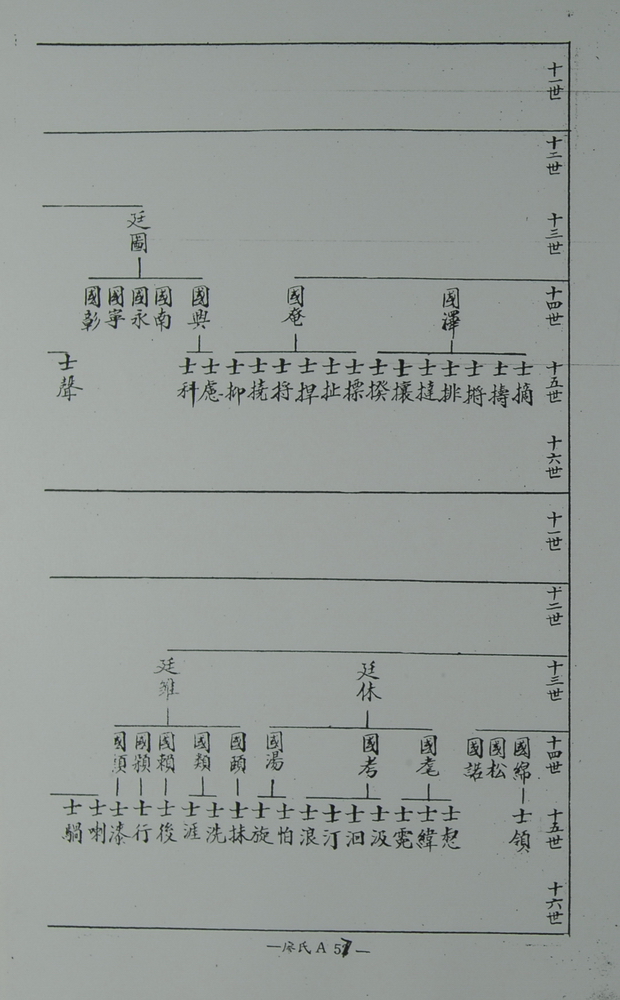 十一世
十二世
十三世
廷圖
十四世
國澤
國麾
國興
國南
國永
國寧
國彰
十五世
士摘
士擣
士排
士撻
士攘
士揆
士摽
士扯
士捍
士捋
士撓
士抑
士慮
士科
士聲
十六世
十一世
十二世
十三世
廷休
廷雖
十四世
國綿
國松
國諾
國耄
國考
國湯
國頤
國類
國賴
國頴
國須
十五世
士領
士想
士緯
士霓
士汲
士洄
士汀
士浪
士怕
士旋
士抹
士洗
士涯
士後
士行
士漆
士喇
士蝸
十六世
—廖氏 A 57—